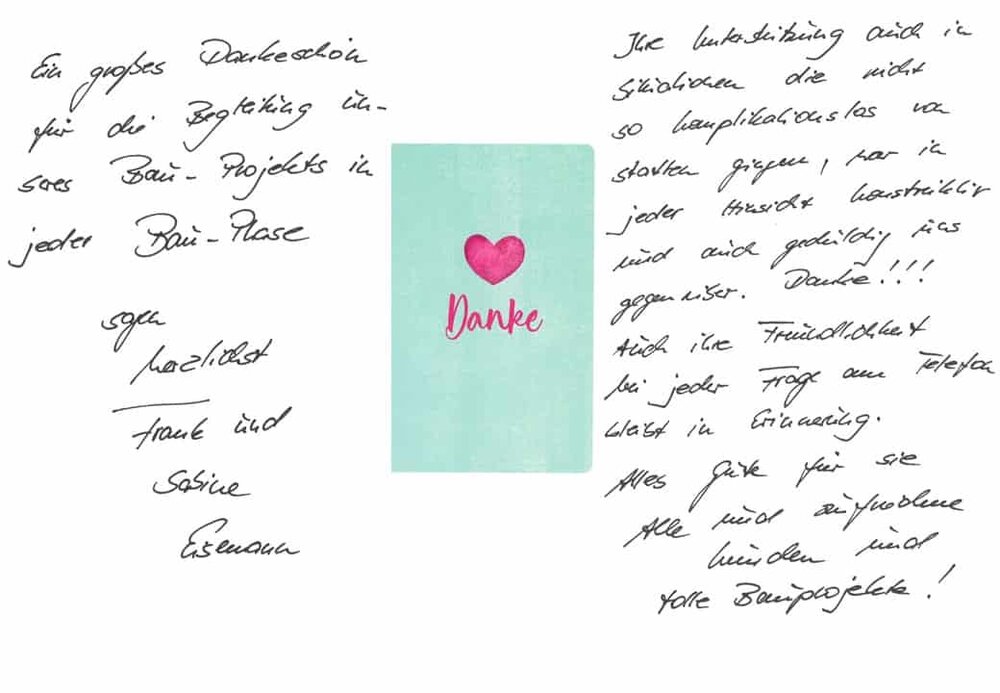 Ein großes Dankeschön
für die Begleitung un-
seres Bau-Projekts in
jeder Bau-Phase
sagen
herzlichst
Frank und
Sabine
Eisemann
Danke
Ihre Unterstützung auch in
Situationen die nicht
so komplikationslos von
statten gingen, war in
jeder Hinsicht konstruktiv
und auch geduldig uns
gegenüber. Danke!!!
Auch ihre Freundlichkeit
bei jeder Frage am Telefon
bleibt in Erinnerung.
Alles Gute für sie
Alle und
Kunden und
tolle Bauprojekte!